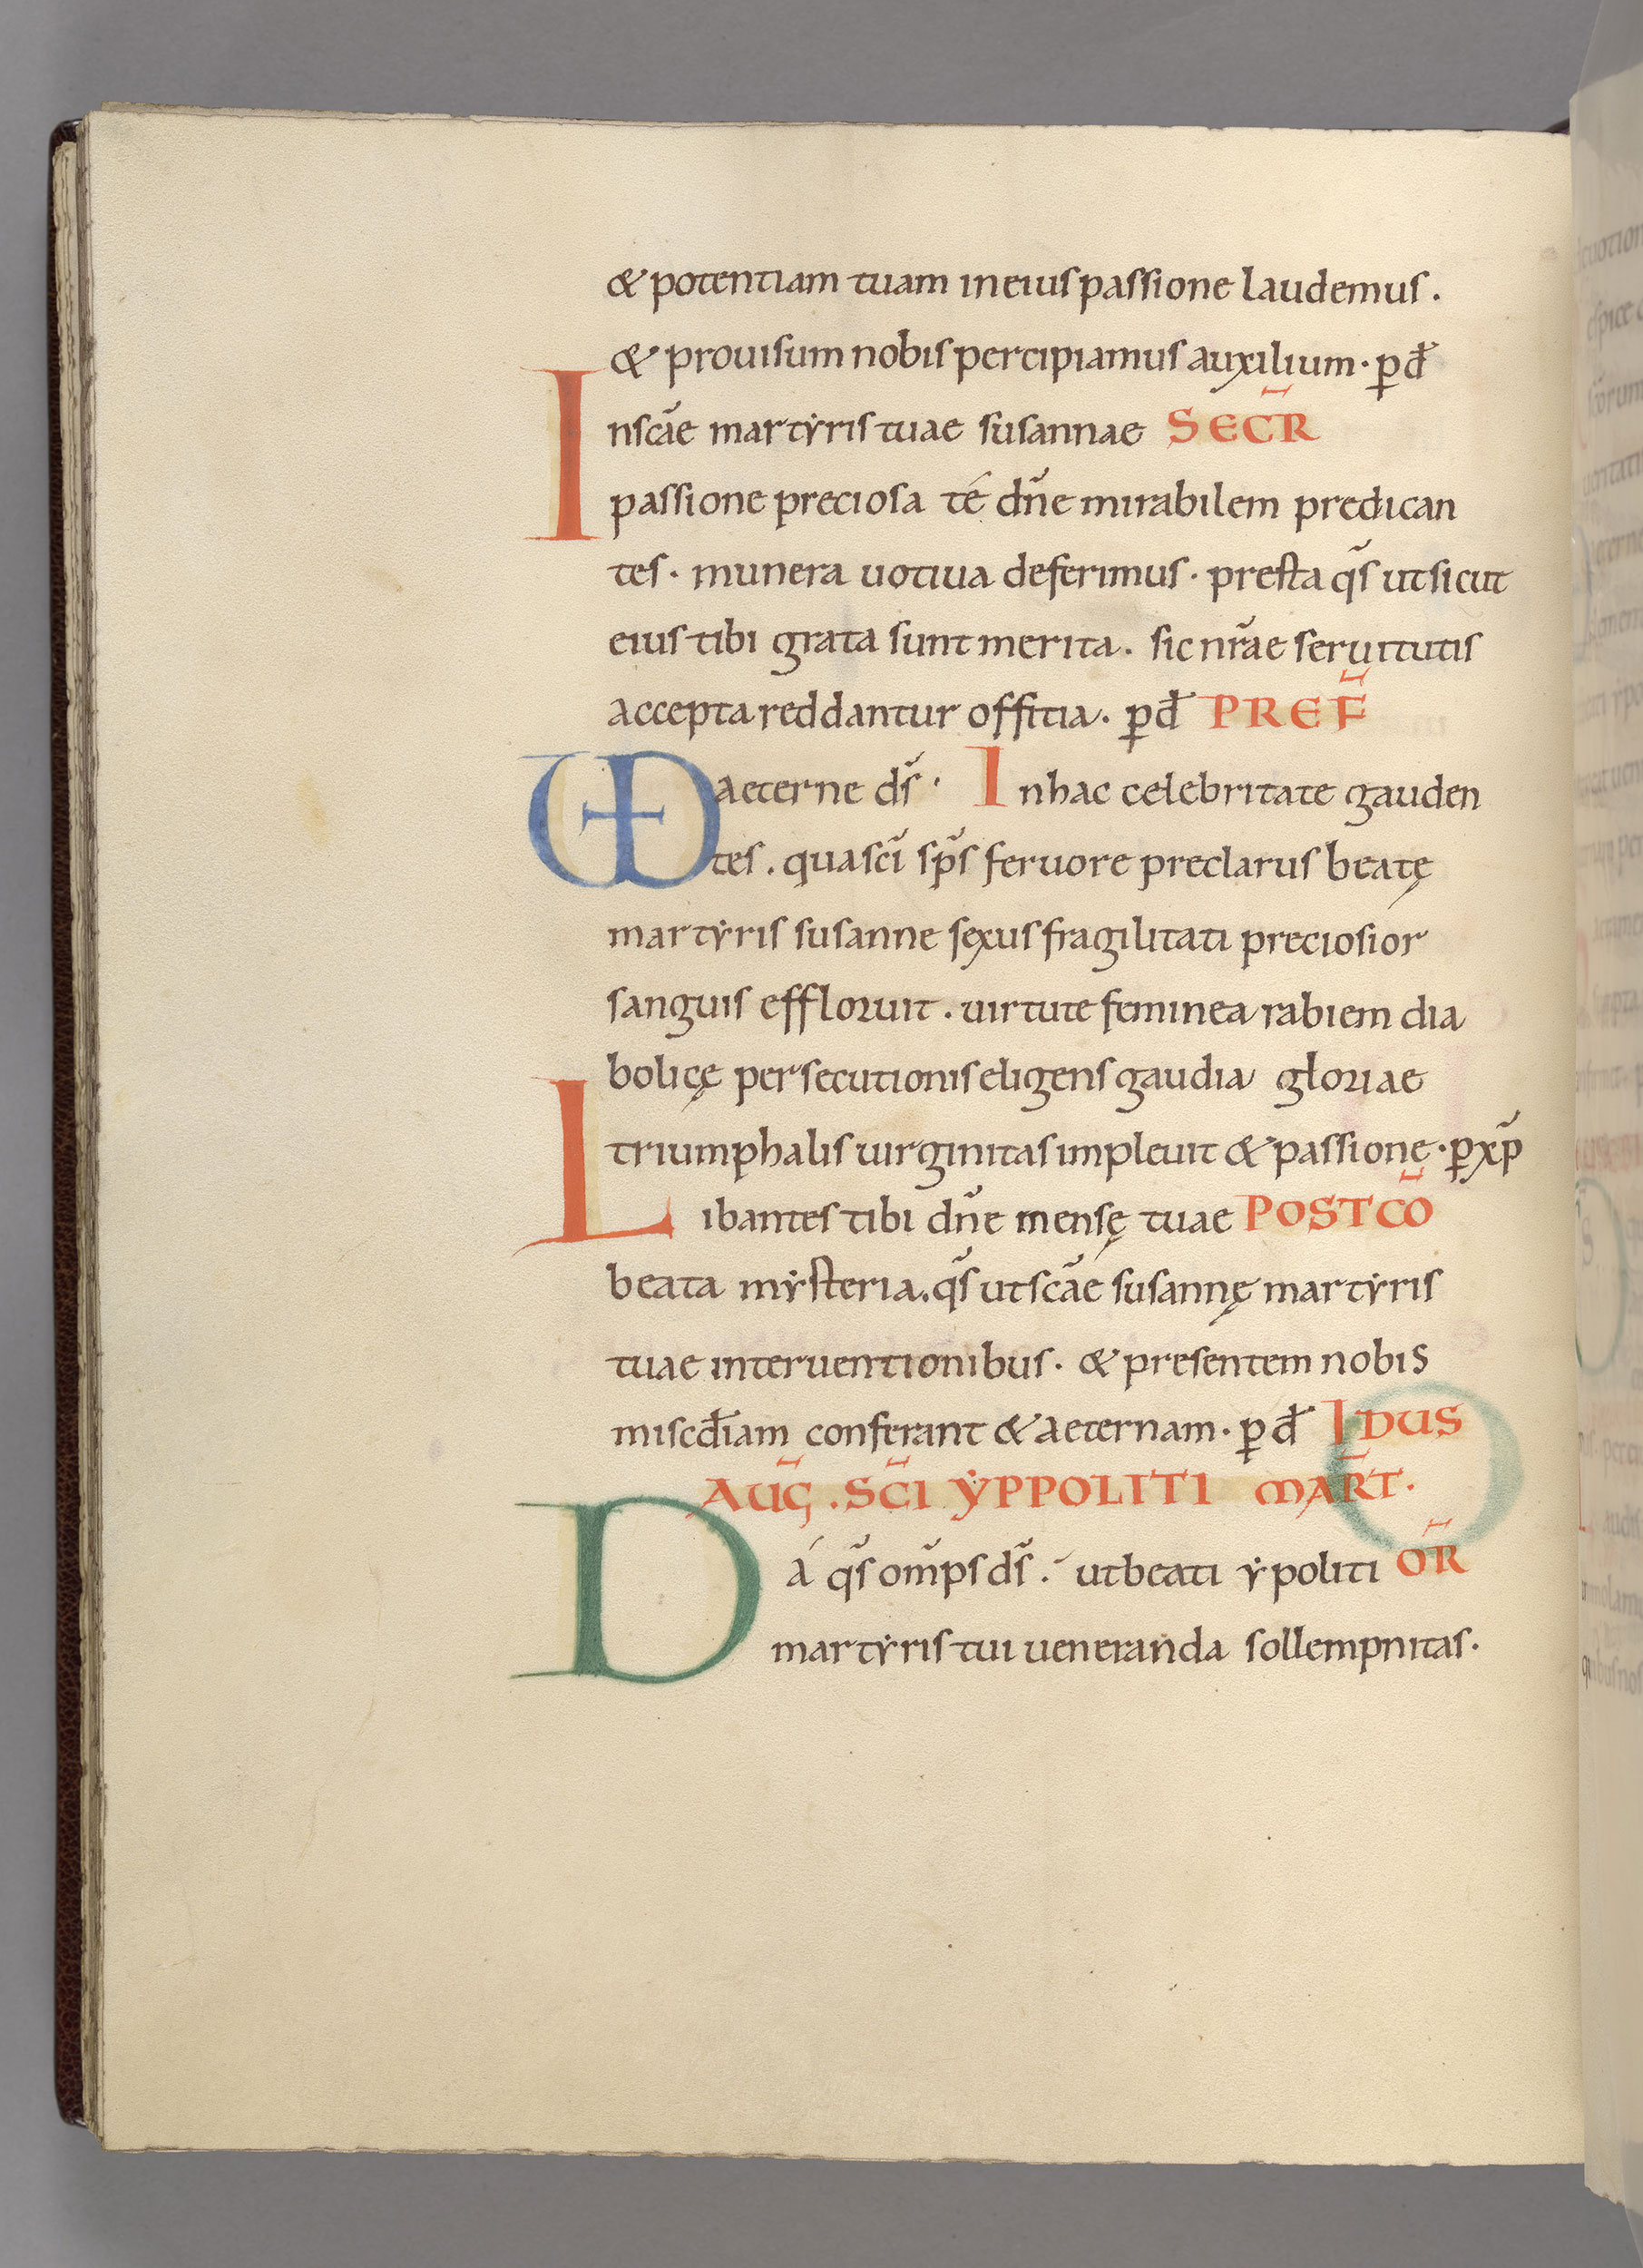 & potentiam tuam in eius passione laudemus.
& prouisum nobis percipiamus auxilium · p̱ đ
In sc̄ae martẏris tuae susannae SEC̄R
passione preciosa té dn̄e mirabilem predican
tes · munera uotiua deferimus · presta qs̄ ut sicut
eius tibi grata sunt merita. sic nr̄ae seruitutis
accepta reddantur offitia. p̱ đ PREF̄
VD aeterne ds̄ · In hac celebritate gauden
tes. qua sc̄i sp̄s feruore preclarus beatę
martẏris susanne sexus fragilitati preciosior
sanguis effloruit. uirtute feminea rabiem dia
bolicę persecutionis eligens gaudia gloriae
triumphalis uirginitas impleuit & passionę · p̱ xp̄
Libantes tibi dn̄e mensę tuae POSTCŌ
beata mẏsteria. qs̄ ut sc̄ae susannę martẏris
tuae interuentionibus. & presentem nobis
miscđiam conferant & aeternam · p̱ đ IDUS
AUḠ. SC̄I ẎPPOLITI MAR̄T.
Dá qs̄ om̄ps ds̄. ut beati ẏpoliti OR̄
martẏris tui ueneranda sollempnitas.